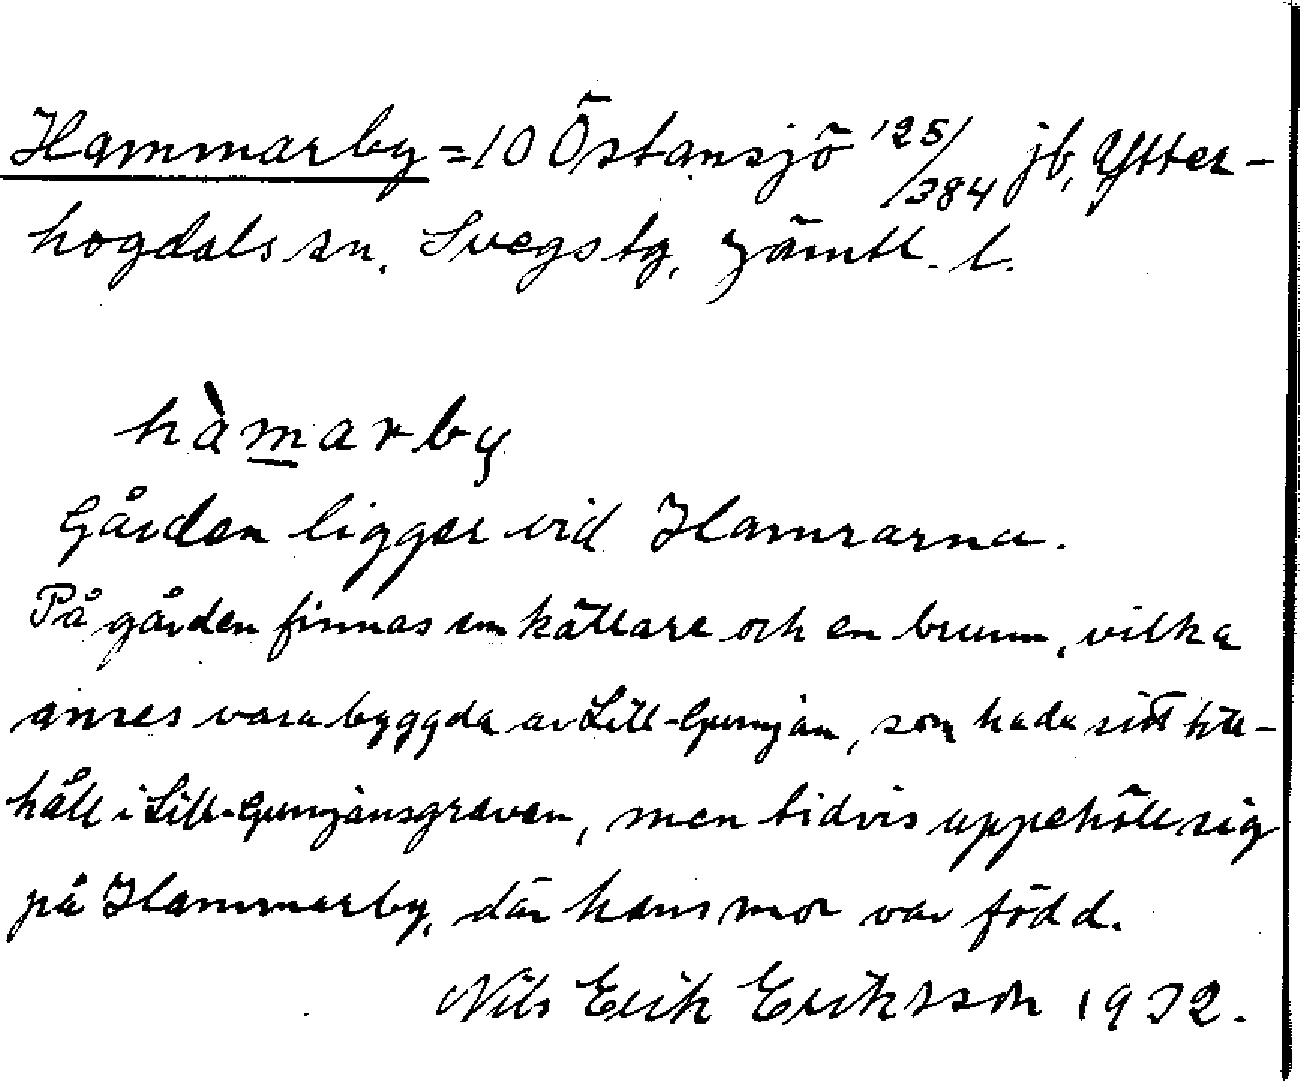 Hammarby = 10 Östansjö 125/384 jb, Ytter-
hogdals sn. Svegs tg, Jämtl. l.
hàmarby
Gården ligger vid Hamrarna.
På gården finnas en källare och en brunn, vilka
anses vara byggda av Lill-Gunnjan, som hade sitt till-
håll i Lill-Gunnjansgraven, men tidvis uppehöll sig
på Hammarby, där hans mor var född.
Nils Erik Eriksson 1932.